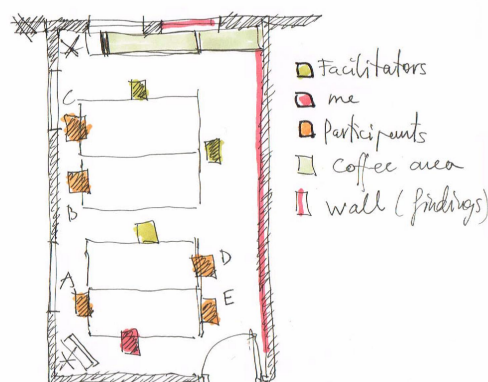 C
B
A
D
E
Facilitators
me
Participants
Coffee area
wall (findings)